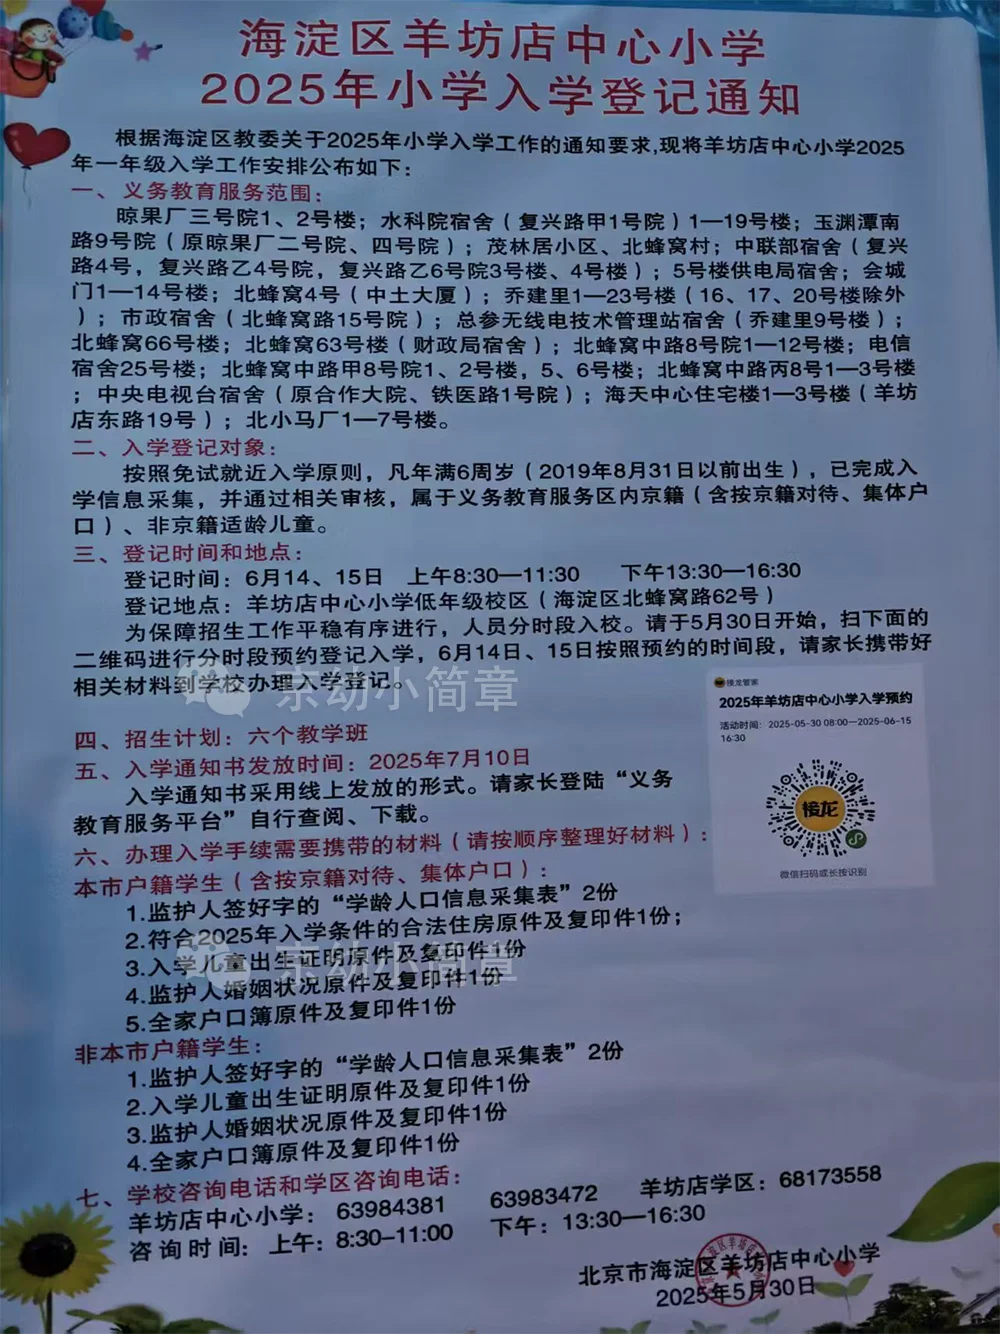 海淀区羊坊店中心小学
2025年小学入学登记通知
根据海淀区教委关于2025年小学入学工作的通知要求,现将羊坊店中心小学2025
年一年级入学工作安排公布如下：
一、义务教育服务范围：
晾果厂三号院1、2号楼；水科院宿舍（复兴路甲1号院）1—19号楼；玉渊潭南
路9号院（原晾果厂二号院、四号院）；茂林居小区、北蜂窝村；中联部宿舍（复兴
路4号，复兴路乙4号院，复兴路乙6号院3号楼、4号楼）；5号楼供电局宿舍；会城
门1—14号楼；北蜂窝4号（中土大厦）；乔建里1—23号楼（16、17、20号楼除外
）；市政宿舍（北蜂窝路15号院）；总参无线电技术管理站宿舍（乔建里9号楼）；
北蜂窝66号楼；北蜂窝63号楼（财政局宿舍）；北蜂窝中路8号院1—12号楼；电信
宿舍25号楼；北蜂窝中路甲8号院1、2号楼，5、6号楼；北蜂窝中路丙8号1—3号楼
；中央电视台宿舍（原合作大院、铁医路1号院）；海天中心住宅楼1—3号楼（羊坊
店东路19号）；北小马厂1—7号楼。
二、入学登记对象：
按照免试就近入学原则，凡年满6周岁（2019年8月31日以前出生），已完成入
学信息采集，并通过相关审核，属于义务教育服务区内京籍（含按京籍对待、集体户
口）、非京籍适龄儿童。
三、登记时间和地点：
登记时间：6月14、15日 上午8:30—11:30 下午13:30—16:30
登记地点：羊坊店中心小学低年级校区（海淀区北蜂窝路62号）
为保障招生工作平稳有序进行，人员分时段入校。请于5月30日开始，扫下面的
二维码进行分时段预约登记入学，6月14日、15日按照预约的时间段，请家长携带好
相关材料到学校办理入学登记。
京幼小简章
接龙管家
2025年羊坊店中心小学入学预约
活动时间：2025-05-30 08:00—2025-06-15
16:30
接龙
微信扫码或长按识别
四、招生计划：六个教学班
五、入学通知书发放时间：2025年7月10日
入学通知书采用线上发放的形式。请家长登陆“义务
教育服务平台”自行查阅、下载。
六、办理入学手续需要携带的材料（请按顺序整理好材料）：
本市户籍学生（含按京籍对待、集体户口）：
1.监护人签好字的“学龄人口信息采集表”2份
2.符合2025年入学条件的合法住房原件及复印件1份；
3.入学儿童出生证明原件及复印件1份
京幼小简章
4.监护人婚姻状况原件及复印件1份
5.全家户口簿原件及复印件1份
非本市户籍学生：
1.监护人签好字的“学龄人口信息采集表”2份
2.入学儿童出生证明原件及复印件1份
3.监护人婚姻状况原件及复印件1份
4.全家户口簿原件及复印件1份
七、学校咨询电话和学区咨询电话：
羊坊店中心小学： 63984381 63983472 羊坊店学区：68173558
咨询时间：上午：8:30–11:00 下午：13:30—16:30
北京市海淀区羊坊店中心小学
2025年5月30日